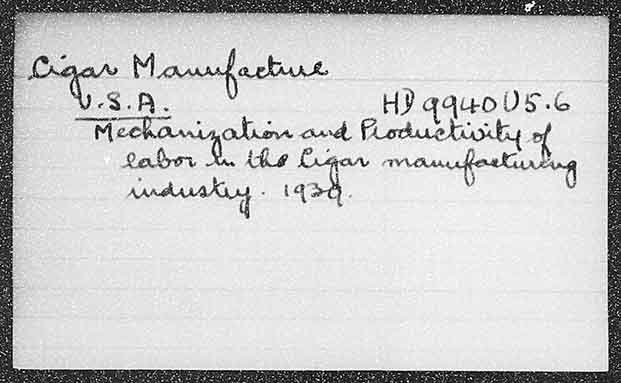 Cigar Manufacture
U.S.A. HD 9940 U5.6
Mechanization and Productivity of
labor in the Cigar manufacturing
industry. 1939.